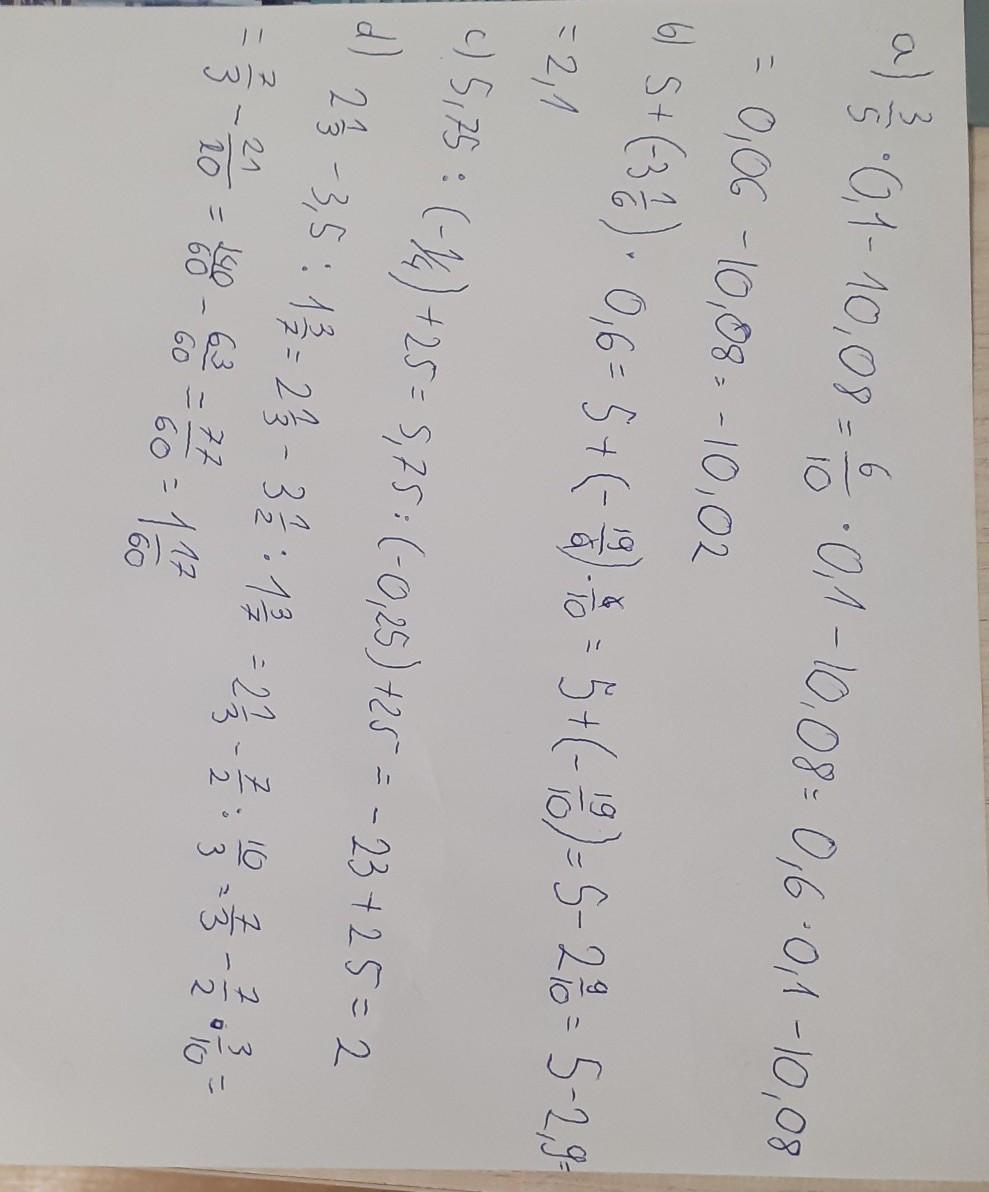 a) 3/5 · 0,1 - 10,08 = 6/10 · 0,1 - 10,08 = 0,6 · 0,1 - 10,08
= 0,06 - 10,08 = - 10,02
b) 5 + (-3 1/6) · 0,6 = 5 + (- 19/6) · 6/10 = 5 + (- 19/10) = 5 - 2 9/10 = 5 - 2,9 =
= 2,1
c) 5,75 : (-1/4) + 25 = 5,75 : (-0,25) + 25 = - 23 + 25 = 2
d) 2 1/3 - 3,5 : 1 3/7 = 2 1/3 - 3 1/2 : 1 3/7 = 2 1/3 - 7/2 : 10/3 = 7/3 - 7/2 · 3/10 =
= 7/3 - 21/20 = 140/60 - 63/60 = 77/60 = 1 17/60